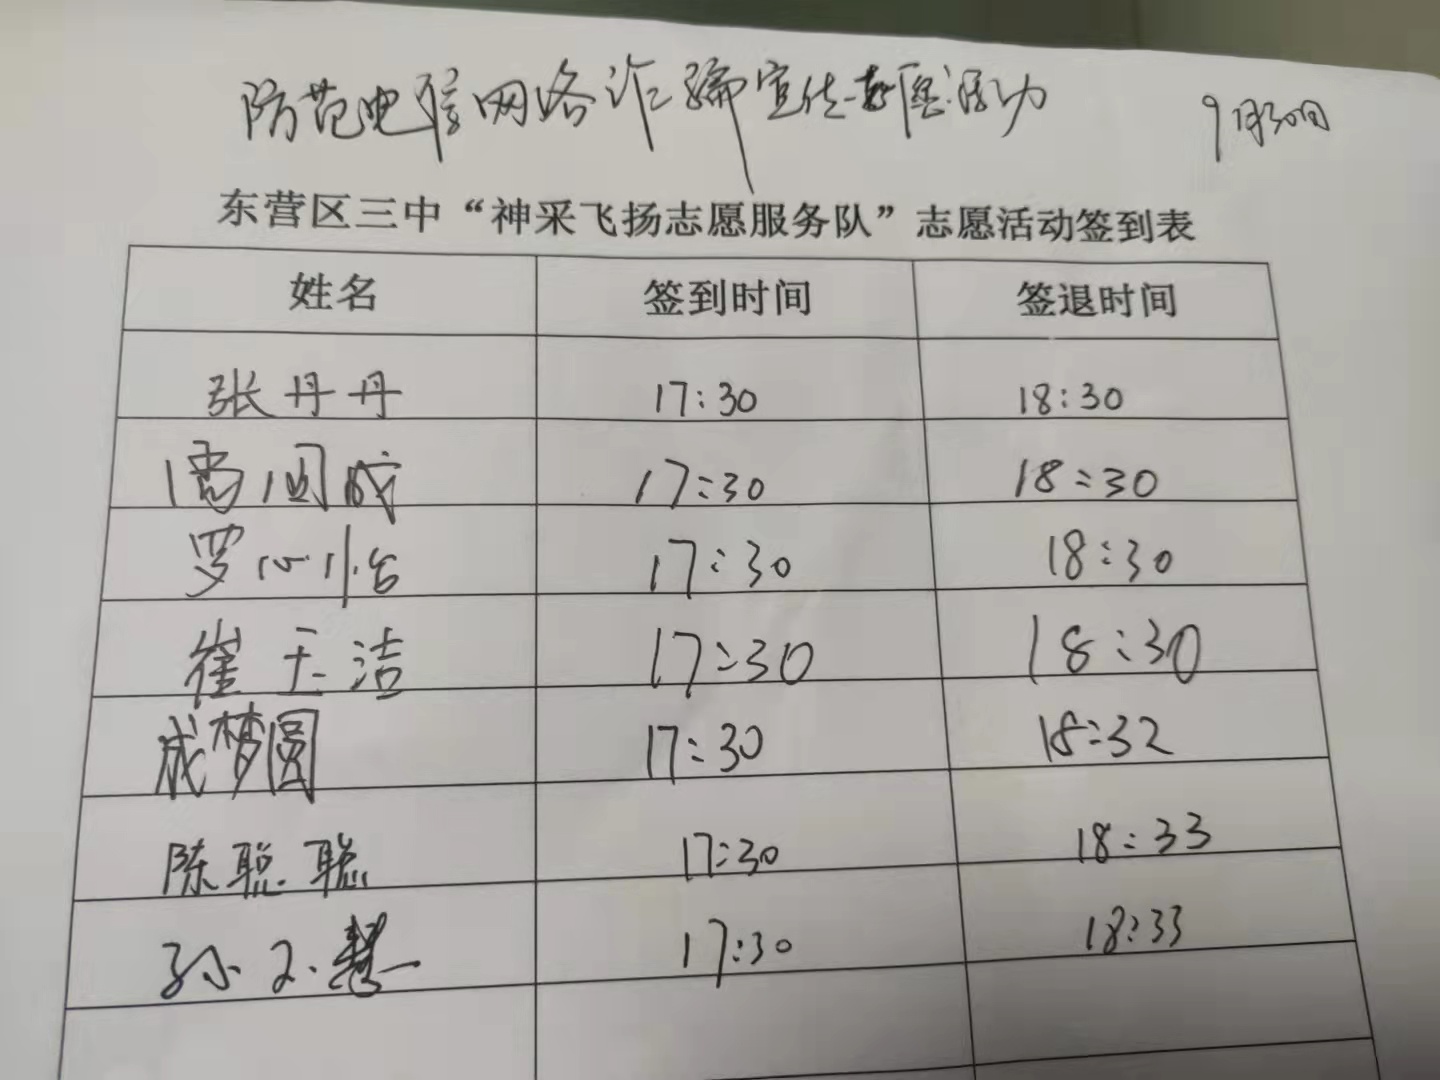 防范电信网络诈骗宣传志愿活动 9月30日
东营区三中“神采飞扬志愿服务队”志愿活动签到表
姓名 签到时间 签退时间
张丹丹 17:30 18:30
17:30 18:30
罗心怡 17:30 18:30
崔玉洁 17:30 18:30
成梦圆 17:30 18:32
陈聪聪 17:30 18:33
孙文慧 17:30 18:33